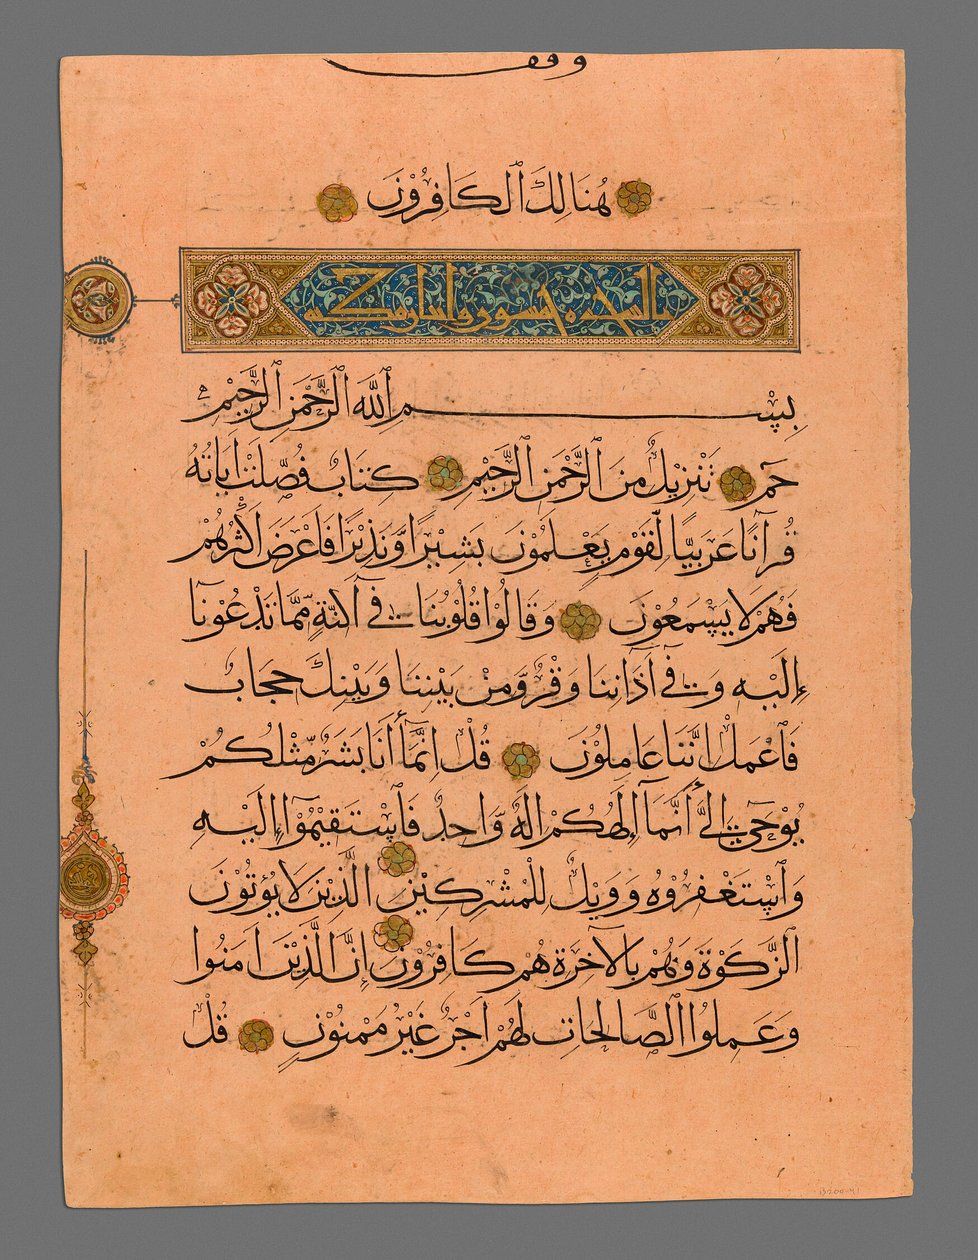 وقف
هُنَالِكَ ٱلكَافِرُوْنَ
السجده خمسون مكيه
بِسْمِ ٱللَّهِ ٱلرَّحْمَنِ ٱلرَّحِيْمِ
حَم تَنْزِيْلٌ مِنَ ٱلرَّحْمَنِ ٱلرَّحِيْمِ كِتَابٌ فُصِّلَتْ اَيَاتُهُ
قُرآنًا عَرَبِيًّا لِّقَوْمٍ يَعْلَمُوْنَ بَشِيْرًا وَّنَذِيْرًا فَاَعْرَضَ اَكْثَرُهُمْ
فَهُمْ لَا يَسْمَعُوْنَ وَقَالُوْا قُلُوْبُنَا فِيْ آكِنَّةٍ مِّمَّا تَدْعُوْنَآ
إِلَيْهِ وَفِيْ آذَانِنَا وَقْرٌ وَّمِنْ بَيْنِنَا وَبَيْنِكَ حِجَابٌ
فَٱعْمَلْ اِنَّنَا عَامِلُوْنَ قُلْ اِنَّمَآ أَنَا بَشَرٌ مِّثْلُكُمْ
يُوْحَىٓ اِلَيَّ أَنَّمَآ اِلَهُكُمْ اِلَهٌ وَّاحِدٌ فَٱسْتَقِيْمُوْٓا إِلَيْهِ
وَٱسْتَغْفِرُوْهُ وَوَيْلٌ لِلْمُشْرِكِيْنَ الَّذِيْنَ لَا يُؤْتُوْنَ
ٱلزَّكَوٰةَ وَهُمْ بِالآخِرَةِ هُمْ كَافِرُوْنَ إِنَّ الَّذِيْنَ اَمَنُوا
وَعَمِلُوا ٱلصَّالِحَاتِ لَهُمْ اَجْرٌ غَيْرُ مَمْنُوْنٍ قُلْ